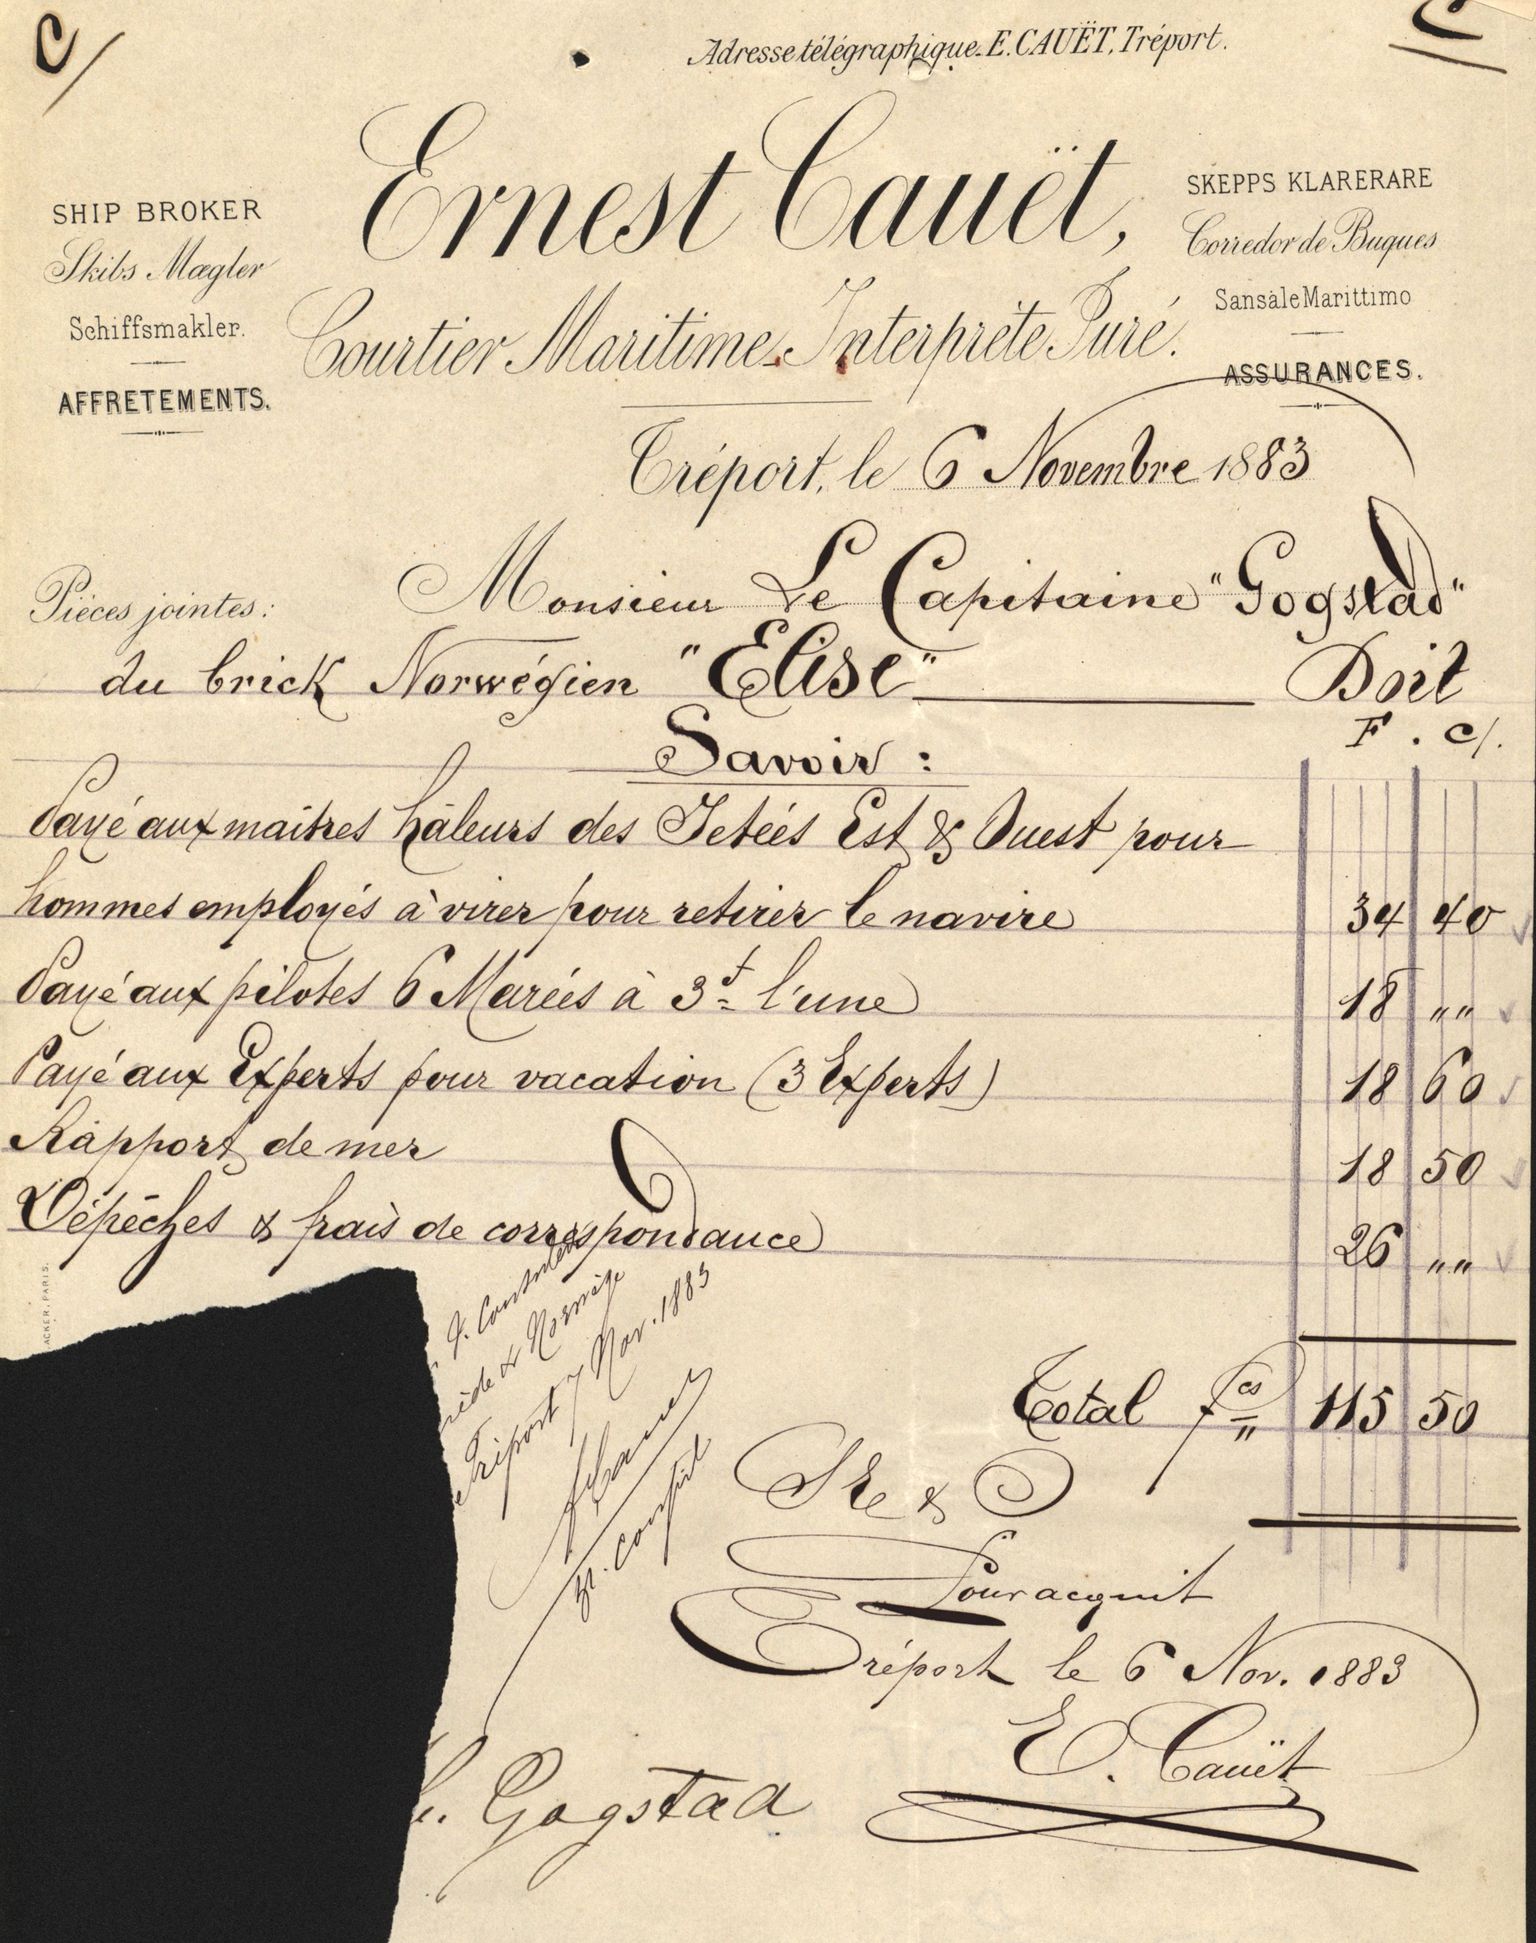 C/
Adresse télégraphique. E. CAUËT, Tréport.
Ernest Cauët,
Courtier Maritime - Interprète Juré.
SHIP BROKER
Skibs Mægler
Schiffsmakler.
AFFRETEMENTS.
SKEPPS KLARERARE
Corredor de Buques
Sansàle Marittimo
ASSURANCES.
Tréport, le 6 Novembre 1883
Pièces jointes: Monsieur Le Capitaine "Gogstad"
du brick Norwégien "Elise" Doit
F. C/.
Savoir :
Payé aux maitres hâleurs des Jeteés Est & Ouest pour
hommes employés à virer pour retirer le navire 34 40
Payé aux pilotes 6 Mareés à 3f l'une 18 " "
Payé aux Experts pour vacation (3 Experts) 18 60
Rapport de mer 18 50
Dépêches & frais de correspondance 26 " "
Total fcs 115 50
ACKER. PARIS.
ède & Norvège
Tréport 7 Nov. 1883
E &
Pour acquit
Tréport le 6 Nov. 1883
E. Cauët
Gogstad